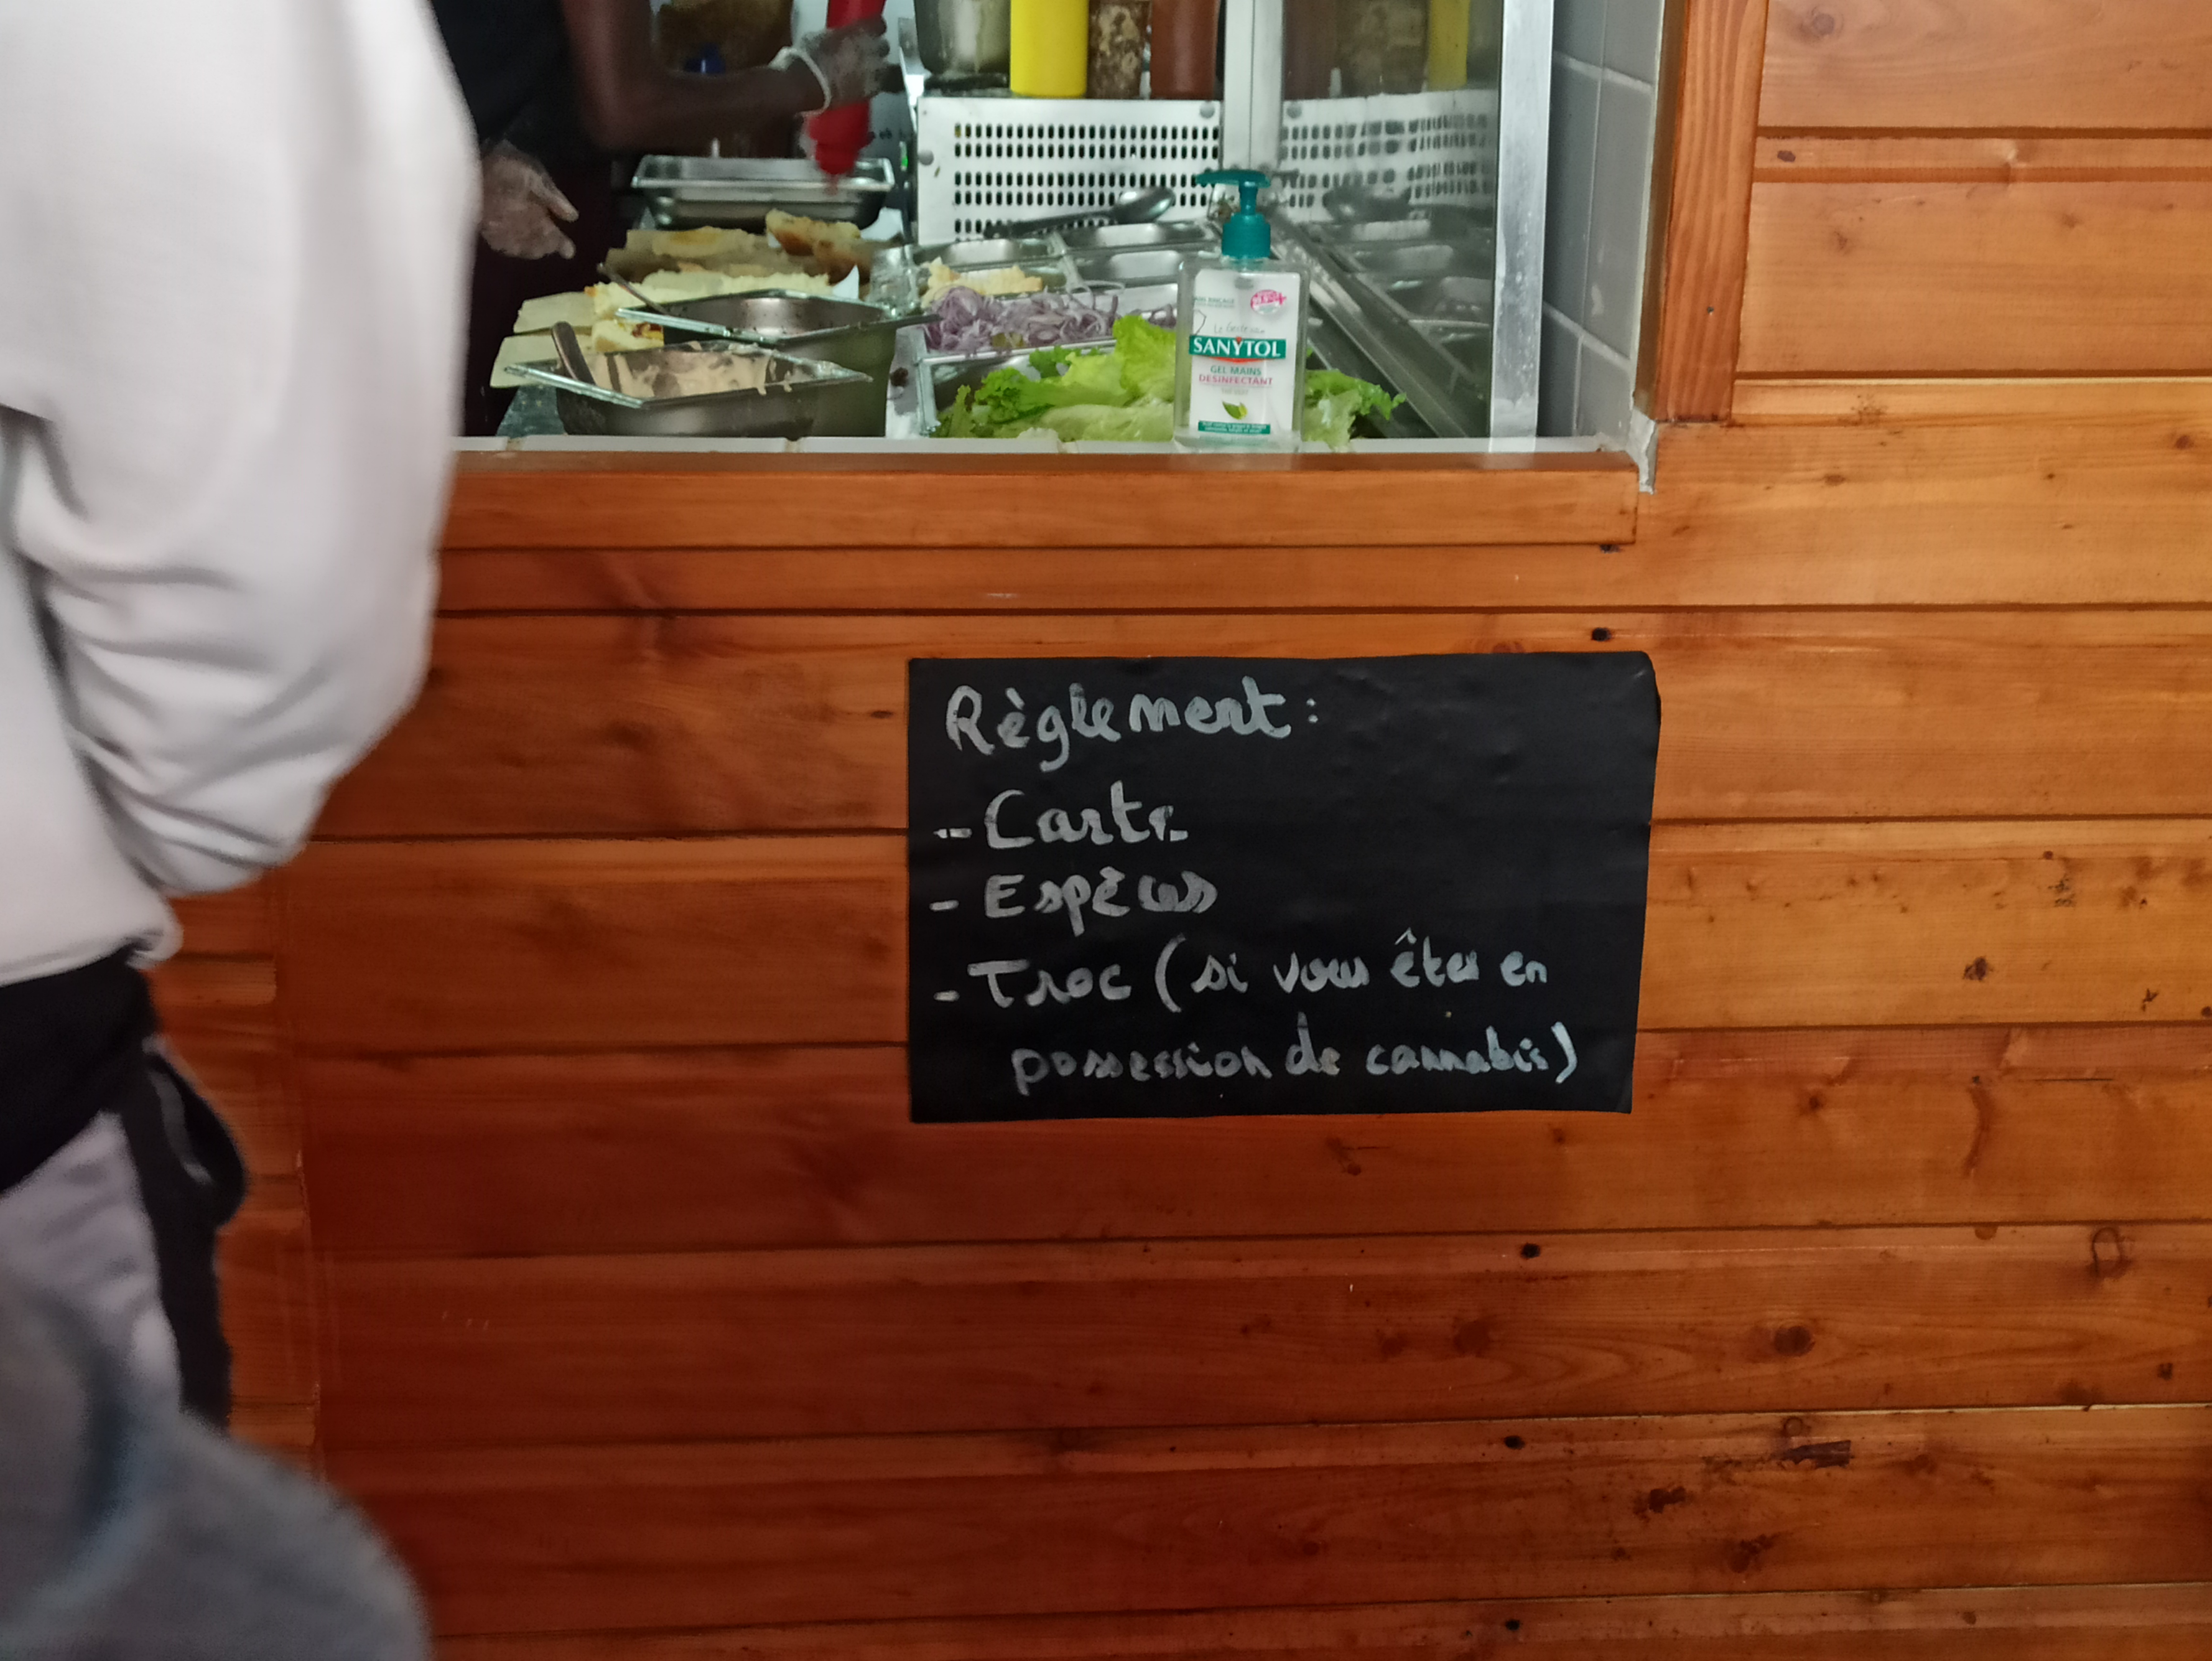 Le Geste sain
SANYTOL
GEL MAINS
DÉSINFECTANT
Règlement :
- Carte
- Espèces
- Troc (si vous êtes en
possession de cannabis)